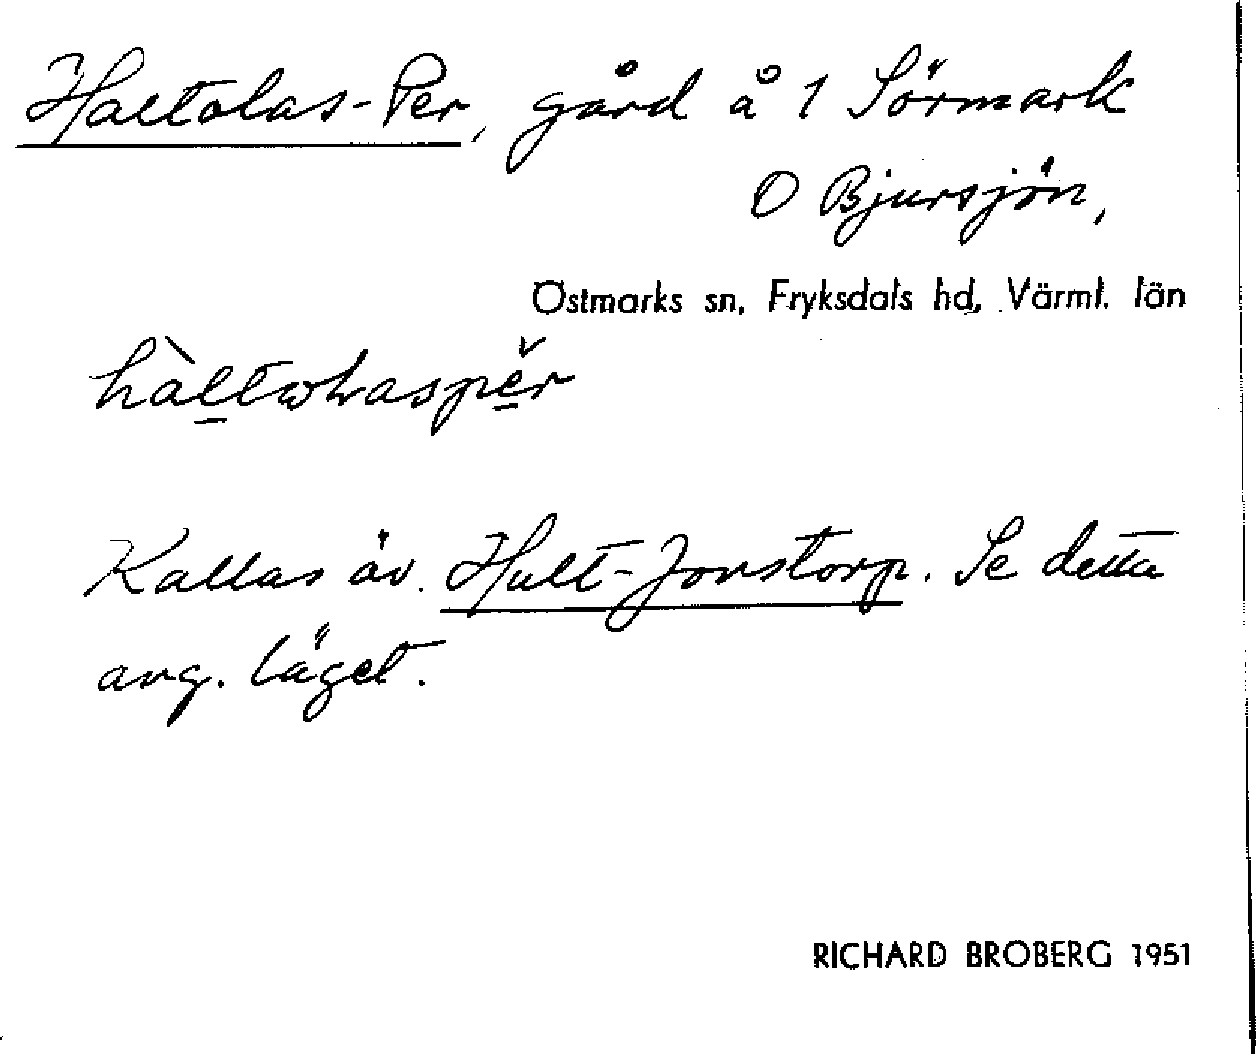 Haltolas-Per, gård å 1 Sörmark
O Bjursjön,
Östmarks sn, Fryksdals hd, Värml. län
Kallas äv. Hult-Jonstorp. Se detta
ang. läget.
RICHARD BROBERG 1951